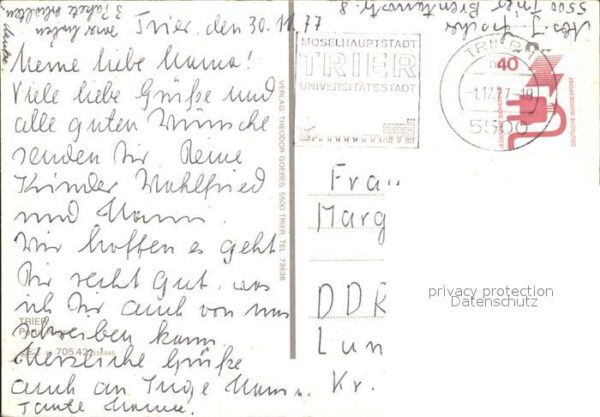 3 Pakete
Trier, den 30.11.77
Meine liebe Mama!
Viele liebe Grüße und
alle guten Wünsche
senden Dir Deine
Kinder Wohlfried
und Hanni.
Wir hoffen es geht
Dir recht gut, was
ich Dir auch von uns
schreiben kann.
Herzliche Grüße
auch an Inge
Tante
TRIER
705.42
VERLAG THEODOR GOEBES, 5500 TRIER, TEL. 73638
Abs. J.
5500 Trier Brentanostr. 8
MOSELHAUPTSTADT
TRIER
UNIVERSITÄTSSTADT
TRIER 1
-1.12.77-19
5500
40
JEDERZEIT SICHERHEIT
DEUTSCHE BUNDESPOST
Frau
Marg
DDR
Lun
Kr.
privacy protection
Datenschutz